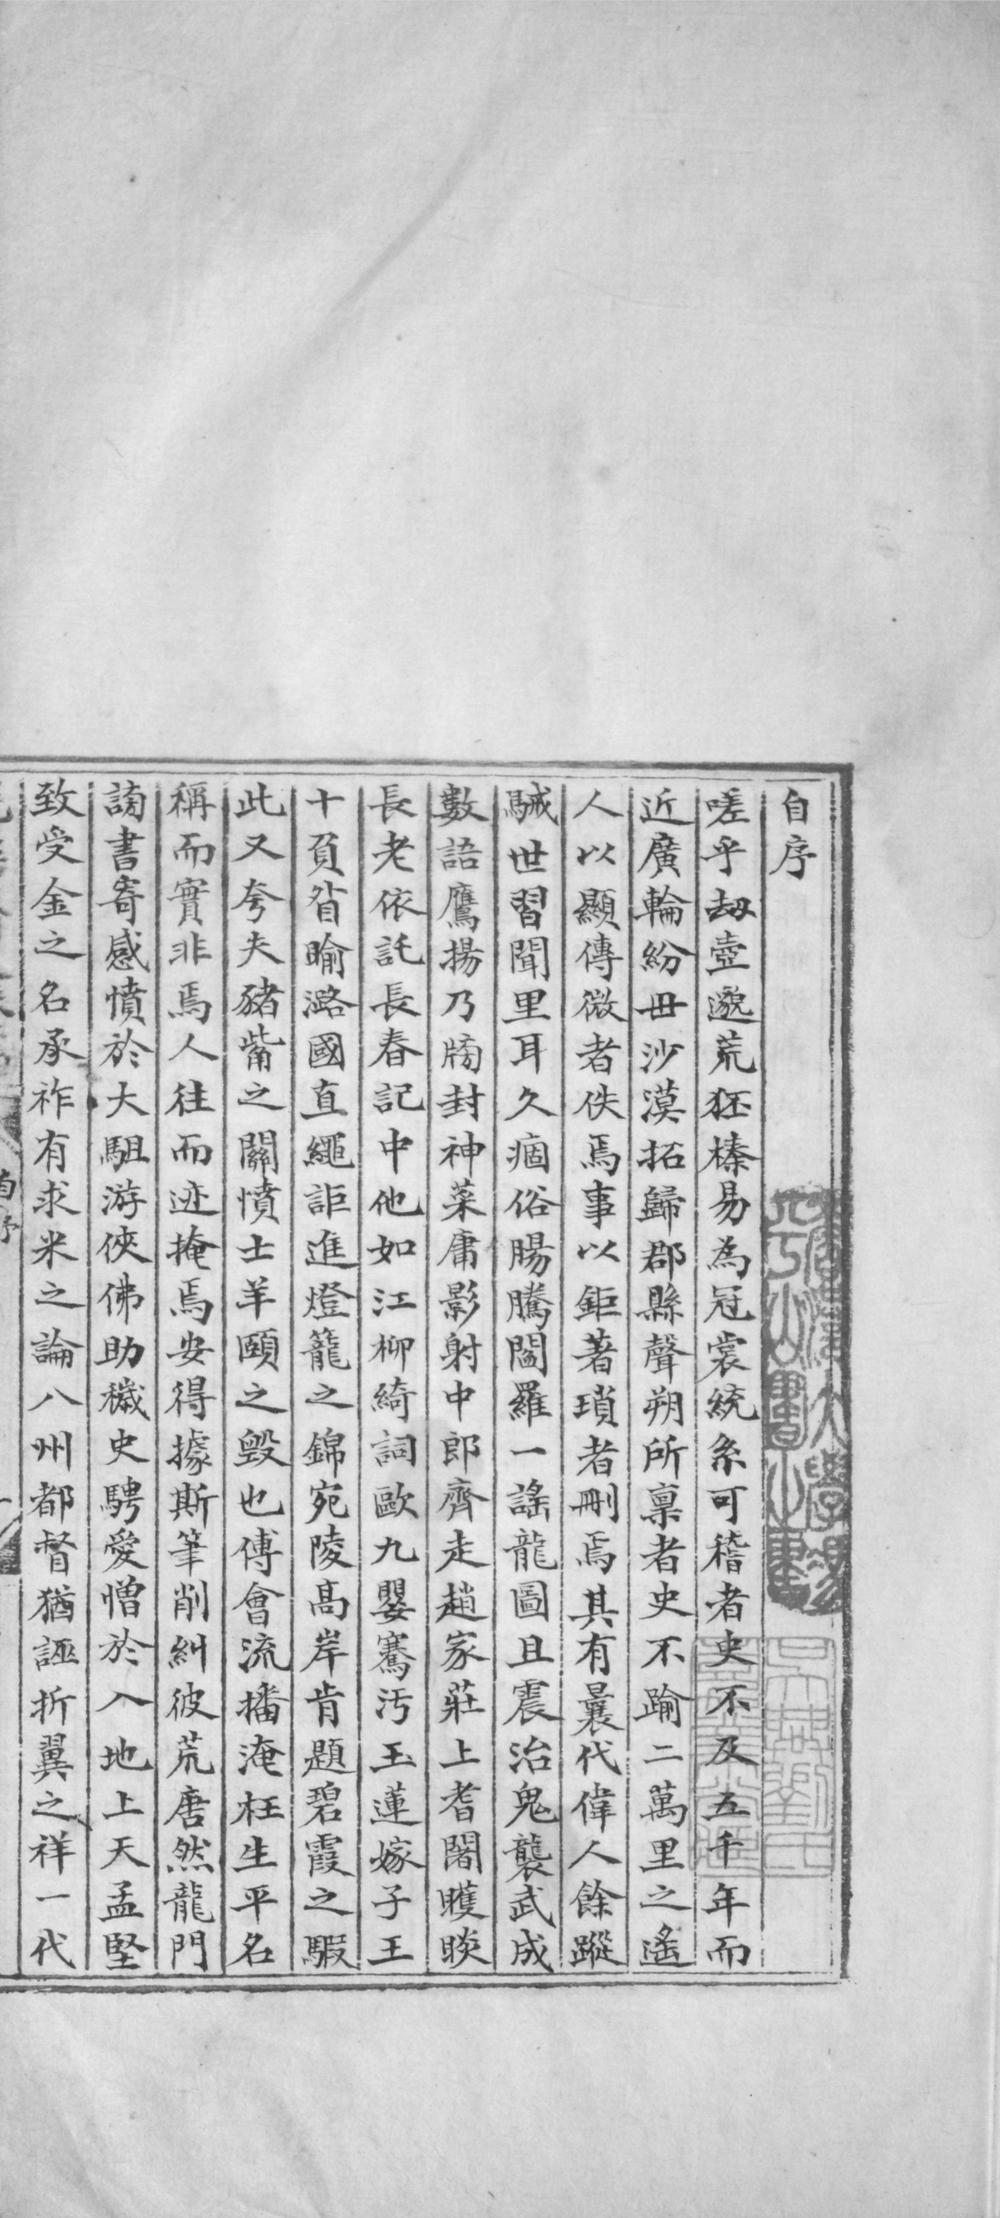 自序
嗟乎刼壺邈荒狉榛易為冠裳統系可稽者史不及五千年而
近廣輪紛毌沙漠拓歸郡縣聲朔所稟者史不踰二萬里之遙
人以顯傳微者佚焉事以鉅著瑣者刪焉其有曩代偉人餘蹤
駴世習聞里耳久痼俗腸騰閻羅一謠龍圖且震治鬼襲武成
數語鷹揚乃牓封神菜庸影射中郎齊走趙家莊上耆闍矆睒
長老依託長春記中他如江柳綺詞歐九嬰騫汚玉蓮嫁子王
十頁眢喻潞國直繩詎進燈籠之錦宛陵高岸肯題碧霞之騢
此又夸夫豬觜之關憤士羊頤之毀也傅會流播淹枉生平名
稱而實非焉人往而迹掩焉安得據斯筆削糾彼荒唐然龍門
謗書寄感憤於大駔游俠佛助穢史騁愛憎於入地上天孟堅
致受金之名承祚有求米之論八州都督猶誣折翼之祥一代
自序
一